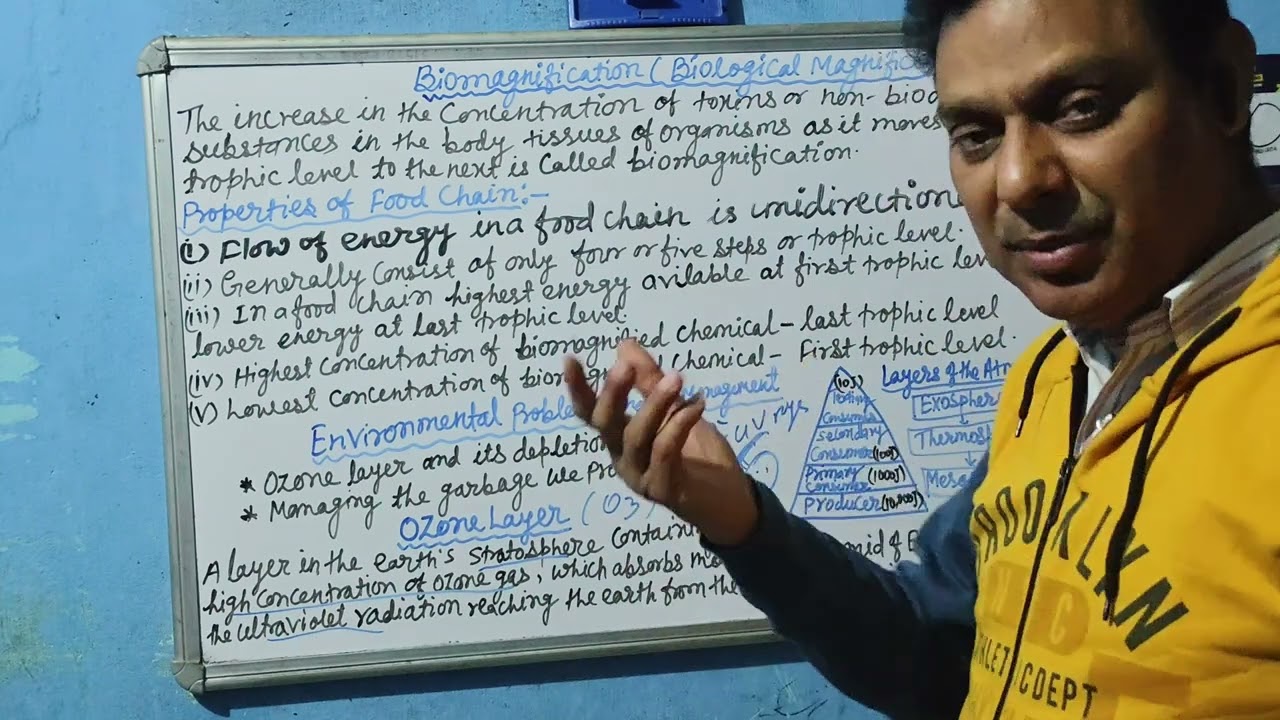 Biomagnification (Biological Magnific
The increase in the Concentration of toxins or non-biod
substances in the body tissues of organisms as it moves
trophic level to the next is Called biomagnification.
Properties of Food Chain:-
(i) Flow of energy in a food chain is unidirection
(ii) Generally Consist of only four or five steps or trophic level.
(iii) In a food chain highest energy avilable at first trophic lev
lower energy at last trophic level.
(iv) Highest Concentration of biomagnified chemical - last trophic level
(v) Lowest Concentration of biom chemical - First trophic level.
Environmental Proble
* Ozone layer and its depletion
* Managing the garbage we pro
UV rys
Ozone Layer (O3)
A layer in the earth's stratosphere Contain
high Concentration of ozone gas, which absorbs mo
the ultraviolet radiation reaching the earth from the
(10J)
Consumer
Secondary
Consumer (100J)
Primary (1000J)
Consumer
Producer (10,000J)
Layers of the Atm
Exospher
Thermosp
Meso
BROOKLYN